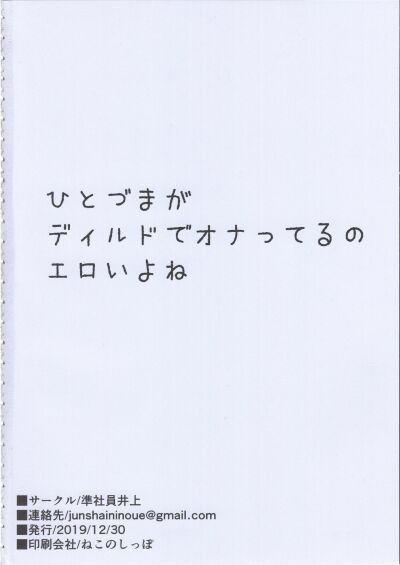 ひとづまが
ディルドでオナってるの
エロいよね
■サークル/準社員井上
■連絡先/junshaininoue@gmail.com
■発行/2019/12/30
■印刷会社/ねこのしっぽ